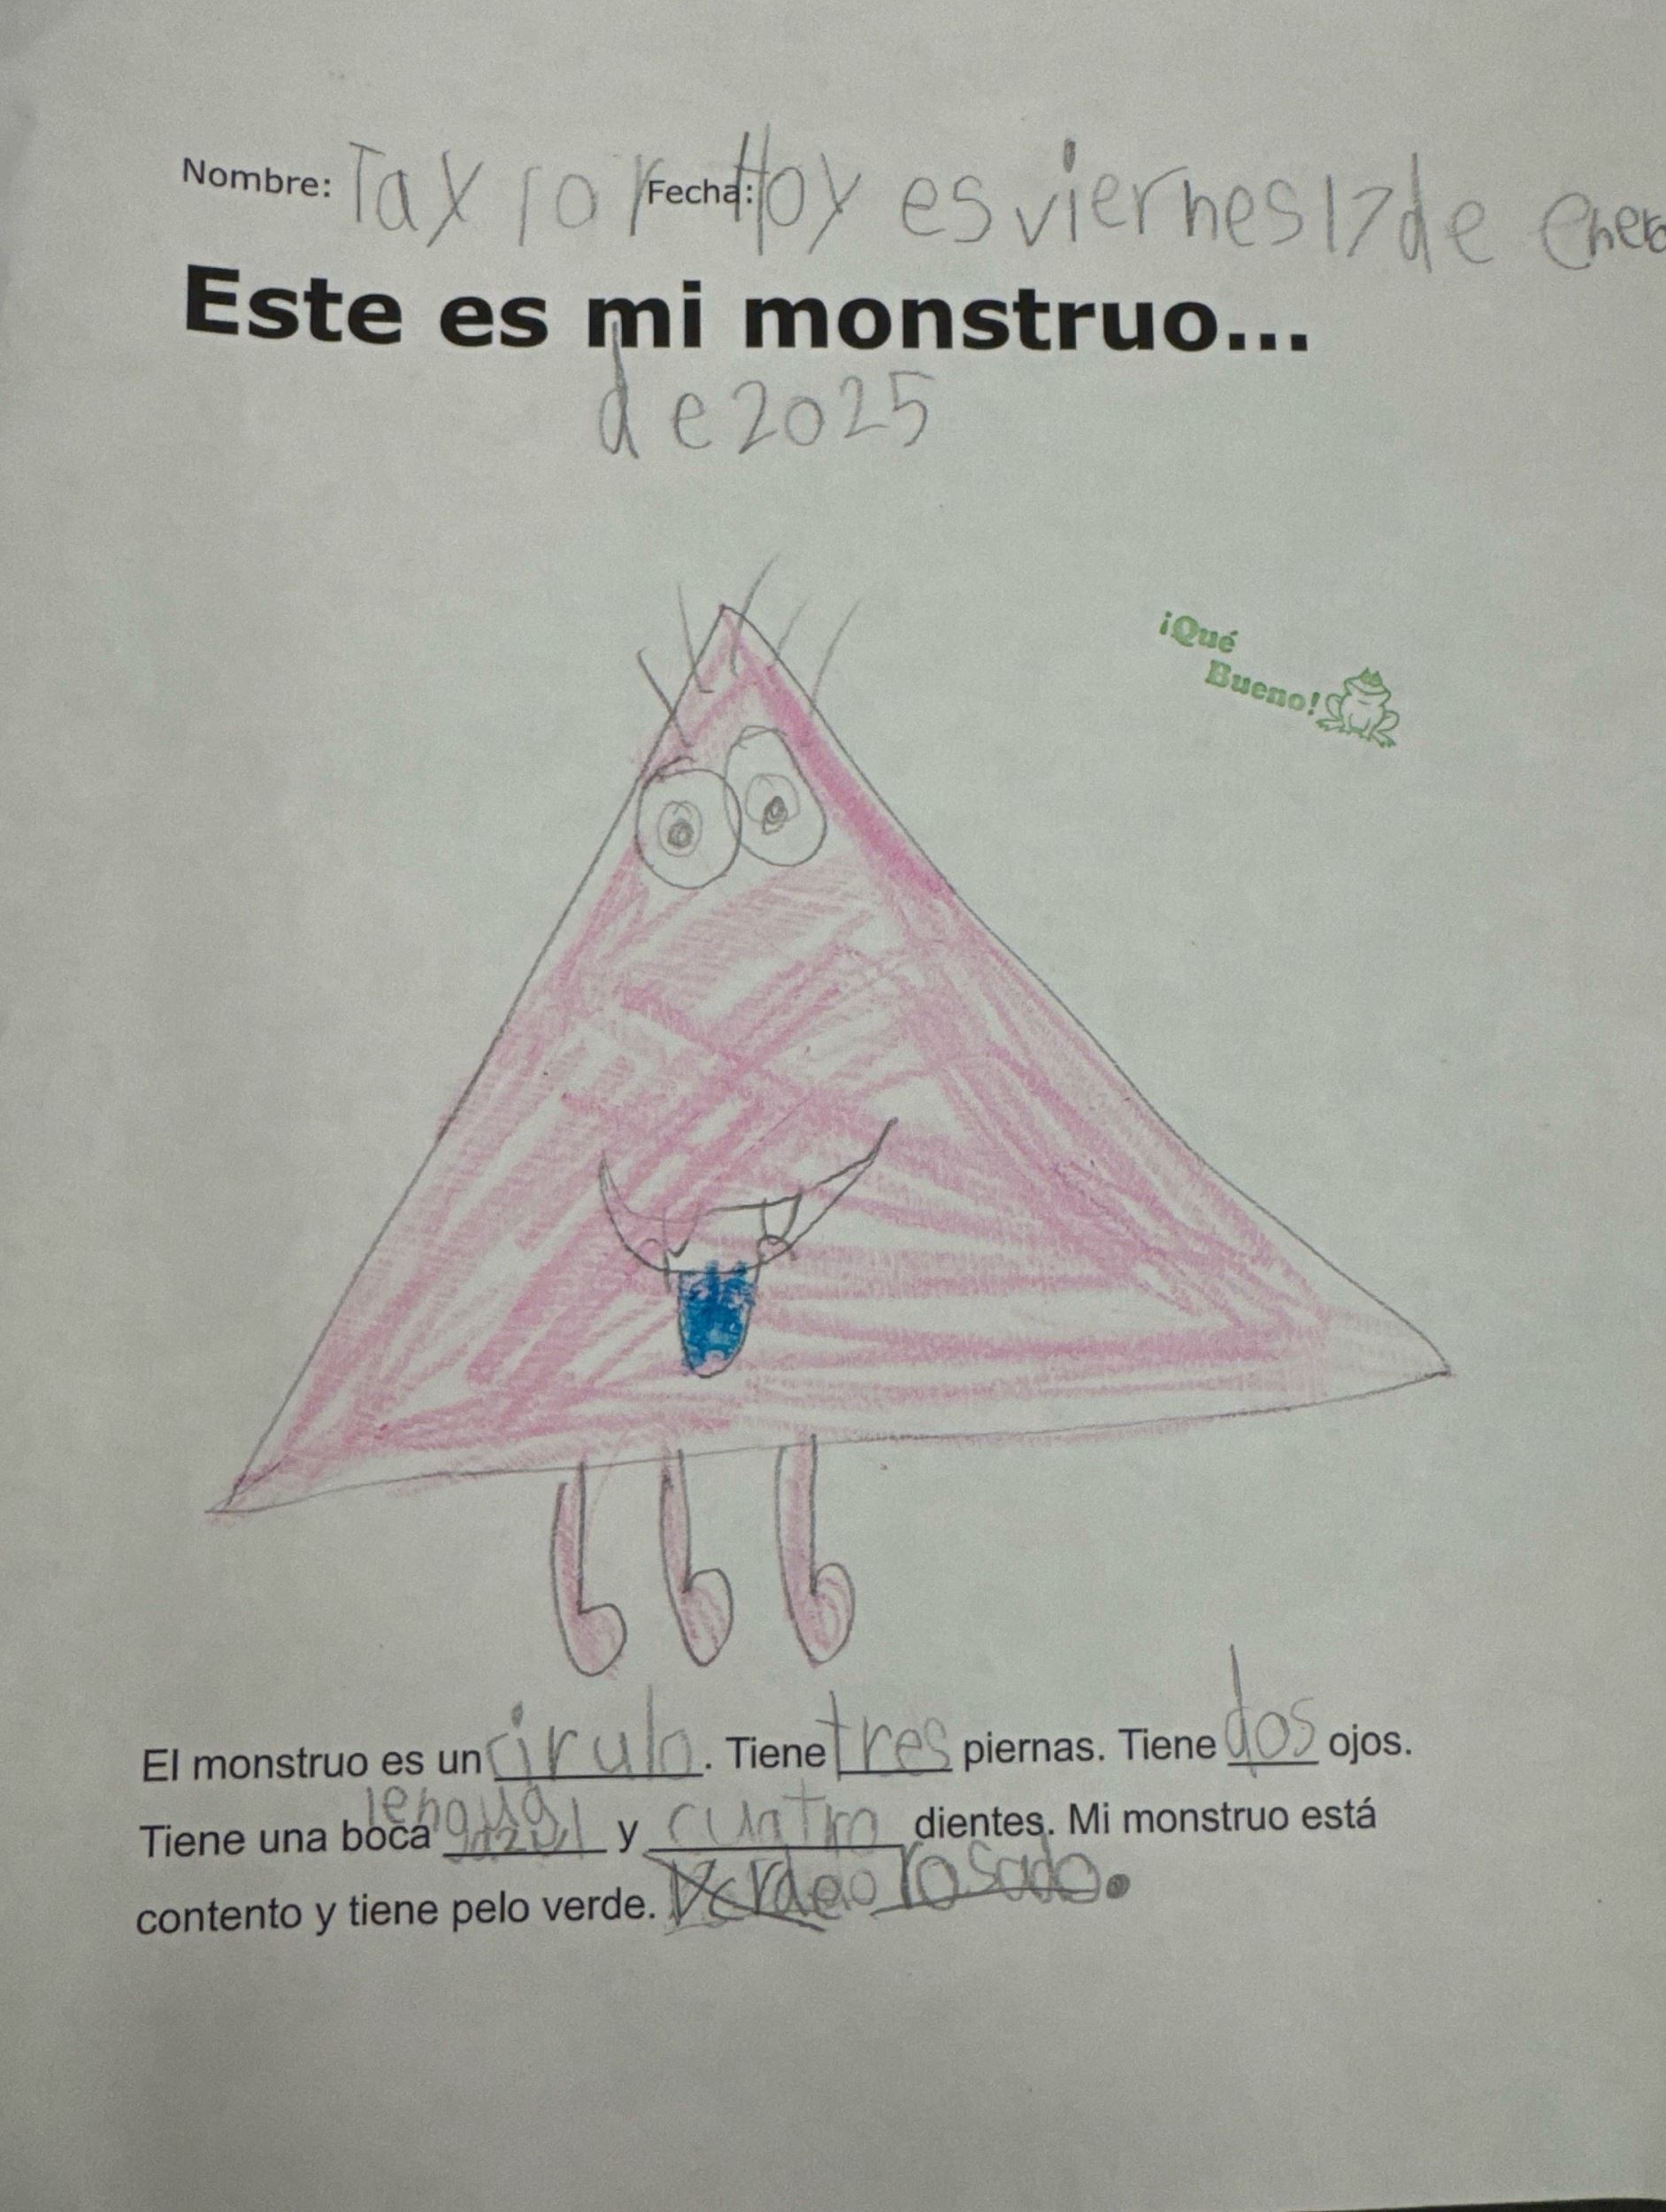 Nombre: Taylor Fecha: Hoy es viernes 17 de enero
Este es mi monstruo...
de 2025
¡Qué
Bueno!
El monstruo es un cirulo. Tiene tres piernas. Tiene dos ojos.
lengua
Tiene una boca azul y cuatro dientes. Mi monstruo está
contento y tiene pelo verde. rosado.